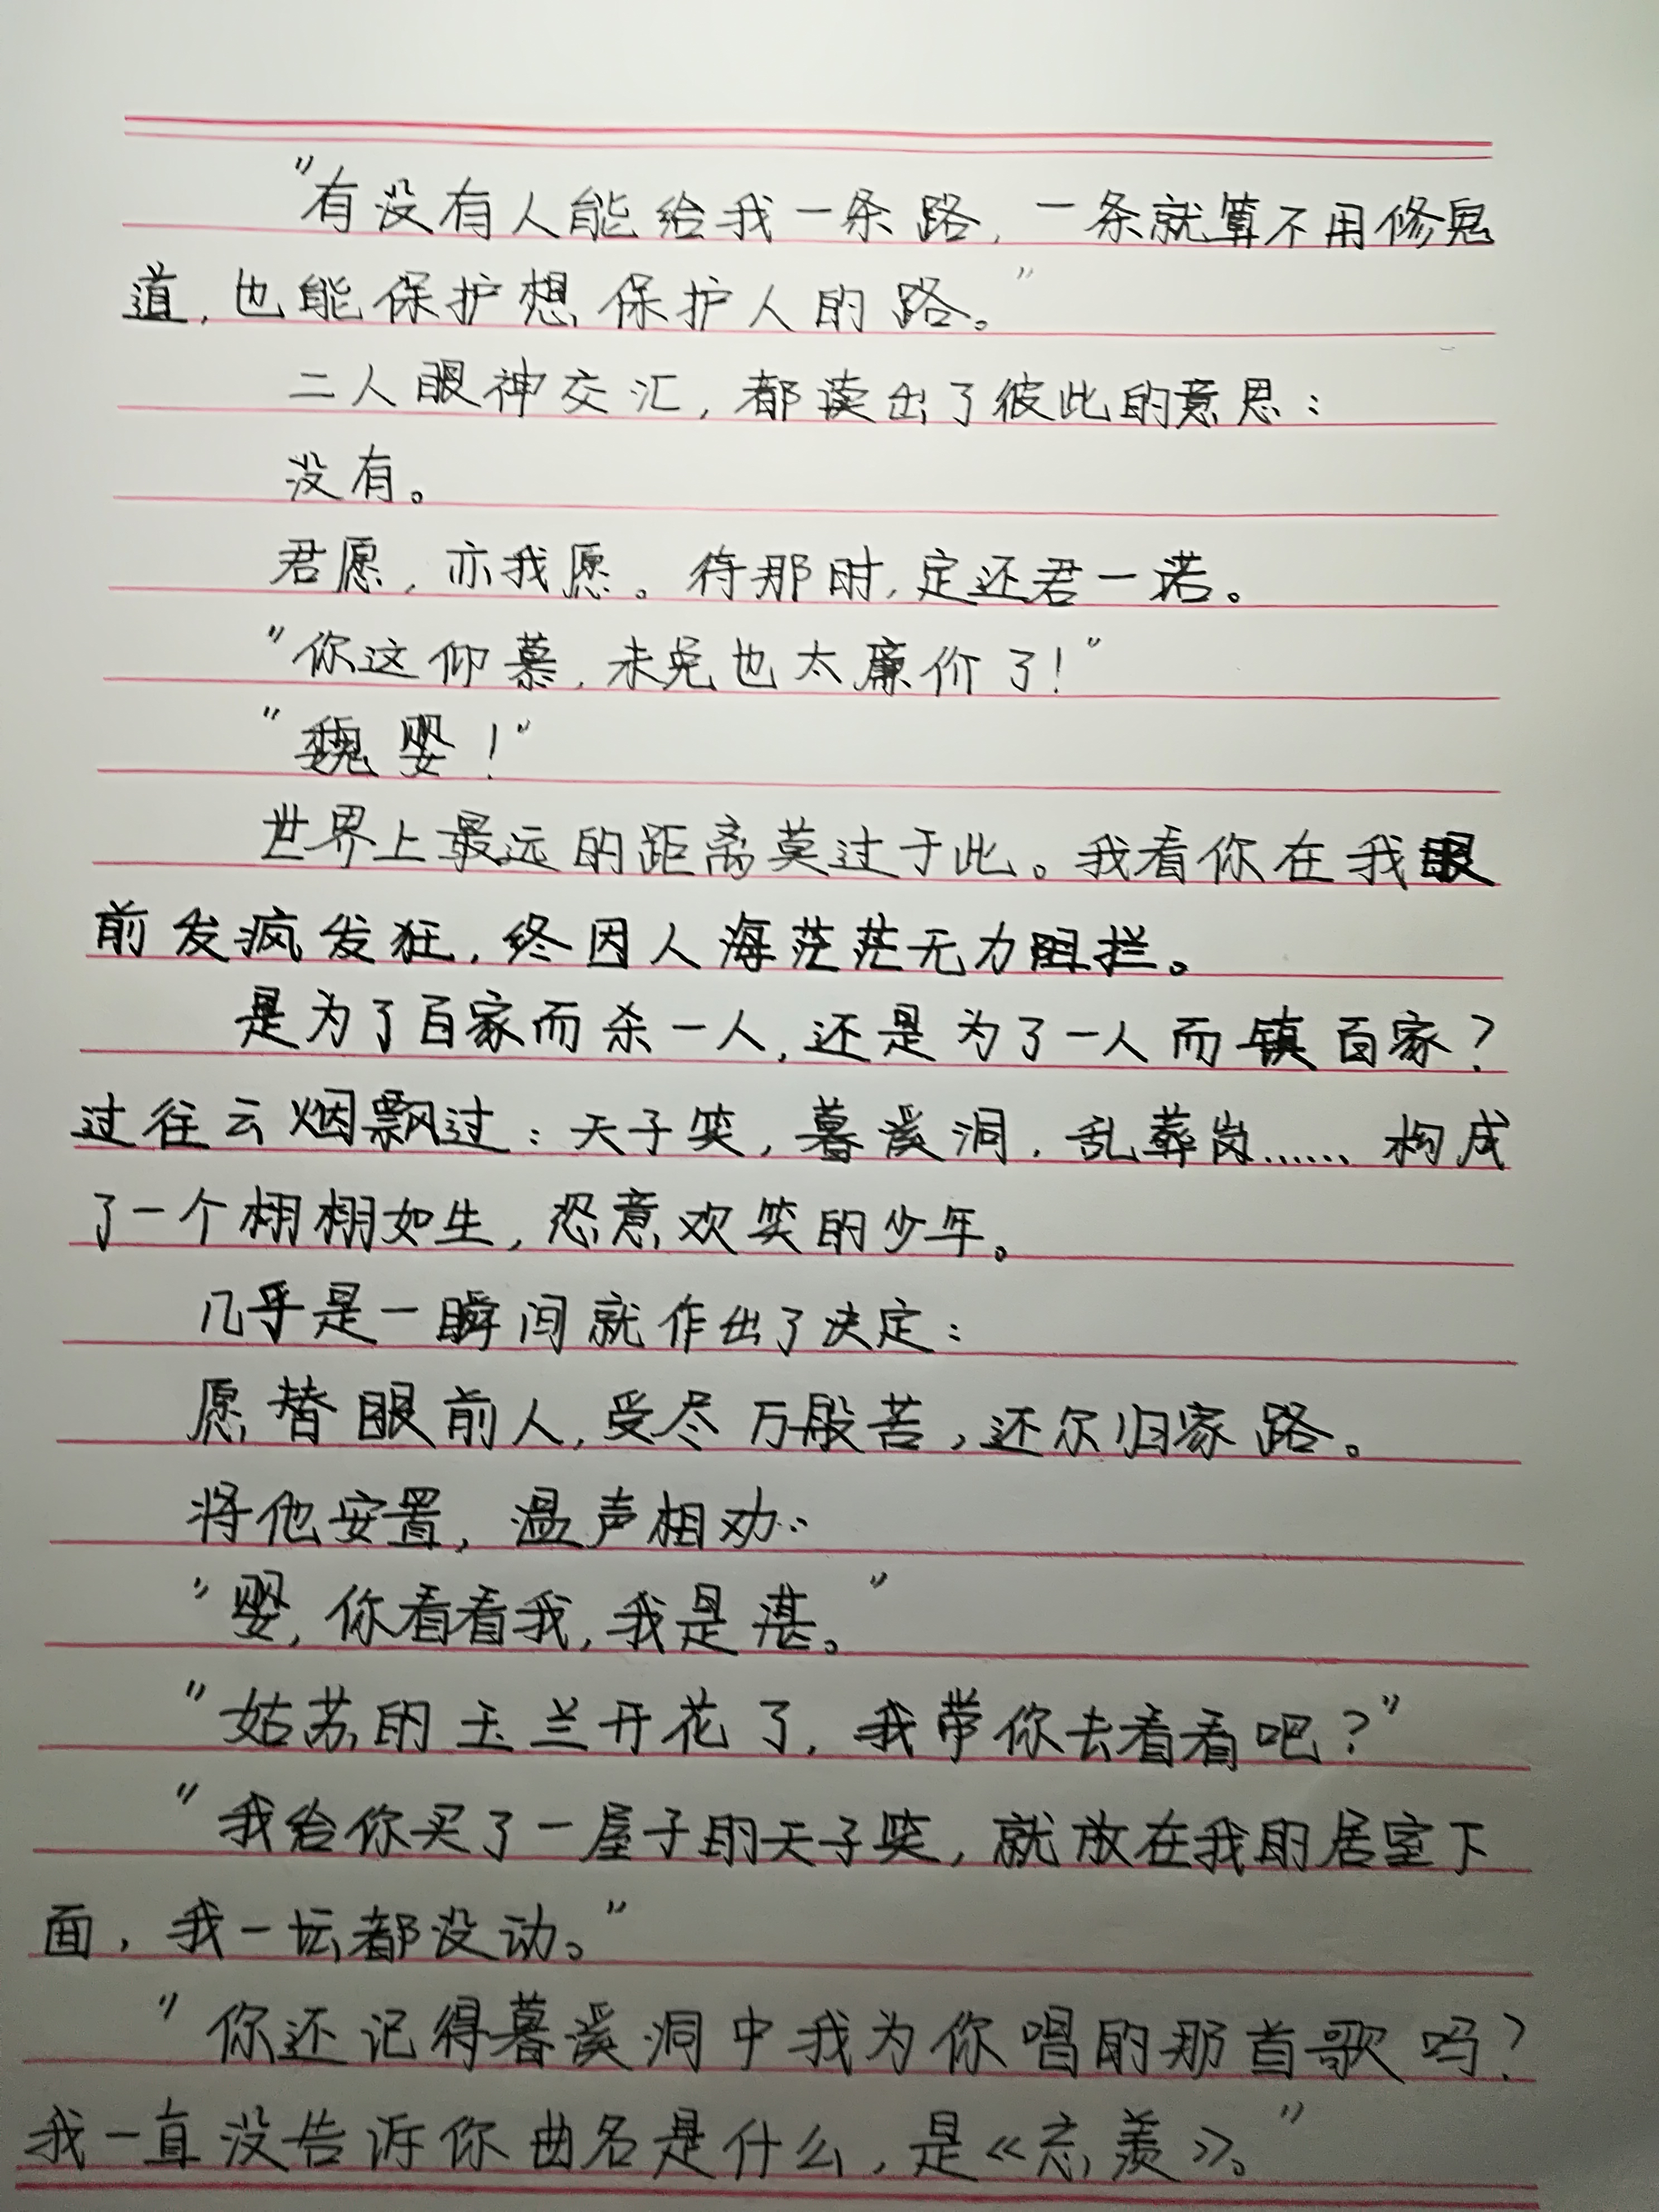 "有没有人能给我一条路，一条就算不用修鬼
道，也能保护想保护人的路。"
二人眼神交汇，都读出了彼此的意思：
没有。
君愿，亦我愿。待那时，定还君一诺。
"你这仰慕，未免也太廉价了！"
"魏婴！"
世界上最远的距离莫过于此。我看你在我眼
前发疯发狂，终因人海茫茫无力阻拦。
是为了百家而杀一人，还是为了一人而镇百家？
过往云烟飘过：天子笑，暮溪洞，乱葬岗……构成
了一个栩栩如生，恣意欢笑的少年。
几乎是一瞬间就作出了决定：
愿替眼前人，受尽万般苦，还尔归家路。
将他安置，温声相劝：
"婴，你看看我，我是湛。"
"姑苏的玉兰开花了，我带你去看看吧？"
"我给你买了一屋子的天子笑，就放在我的居室下
面，我一坛都没动。"
"你还记得暮溪洞中我为你唱的那首歌吗？
我一直没告诉你曲名是什么，是《忘羡》。"